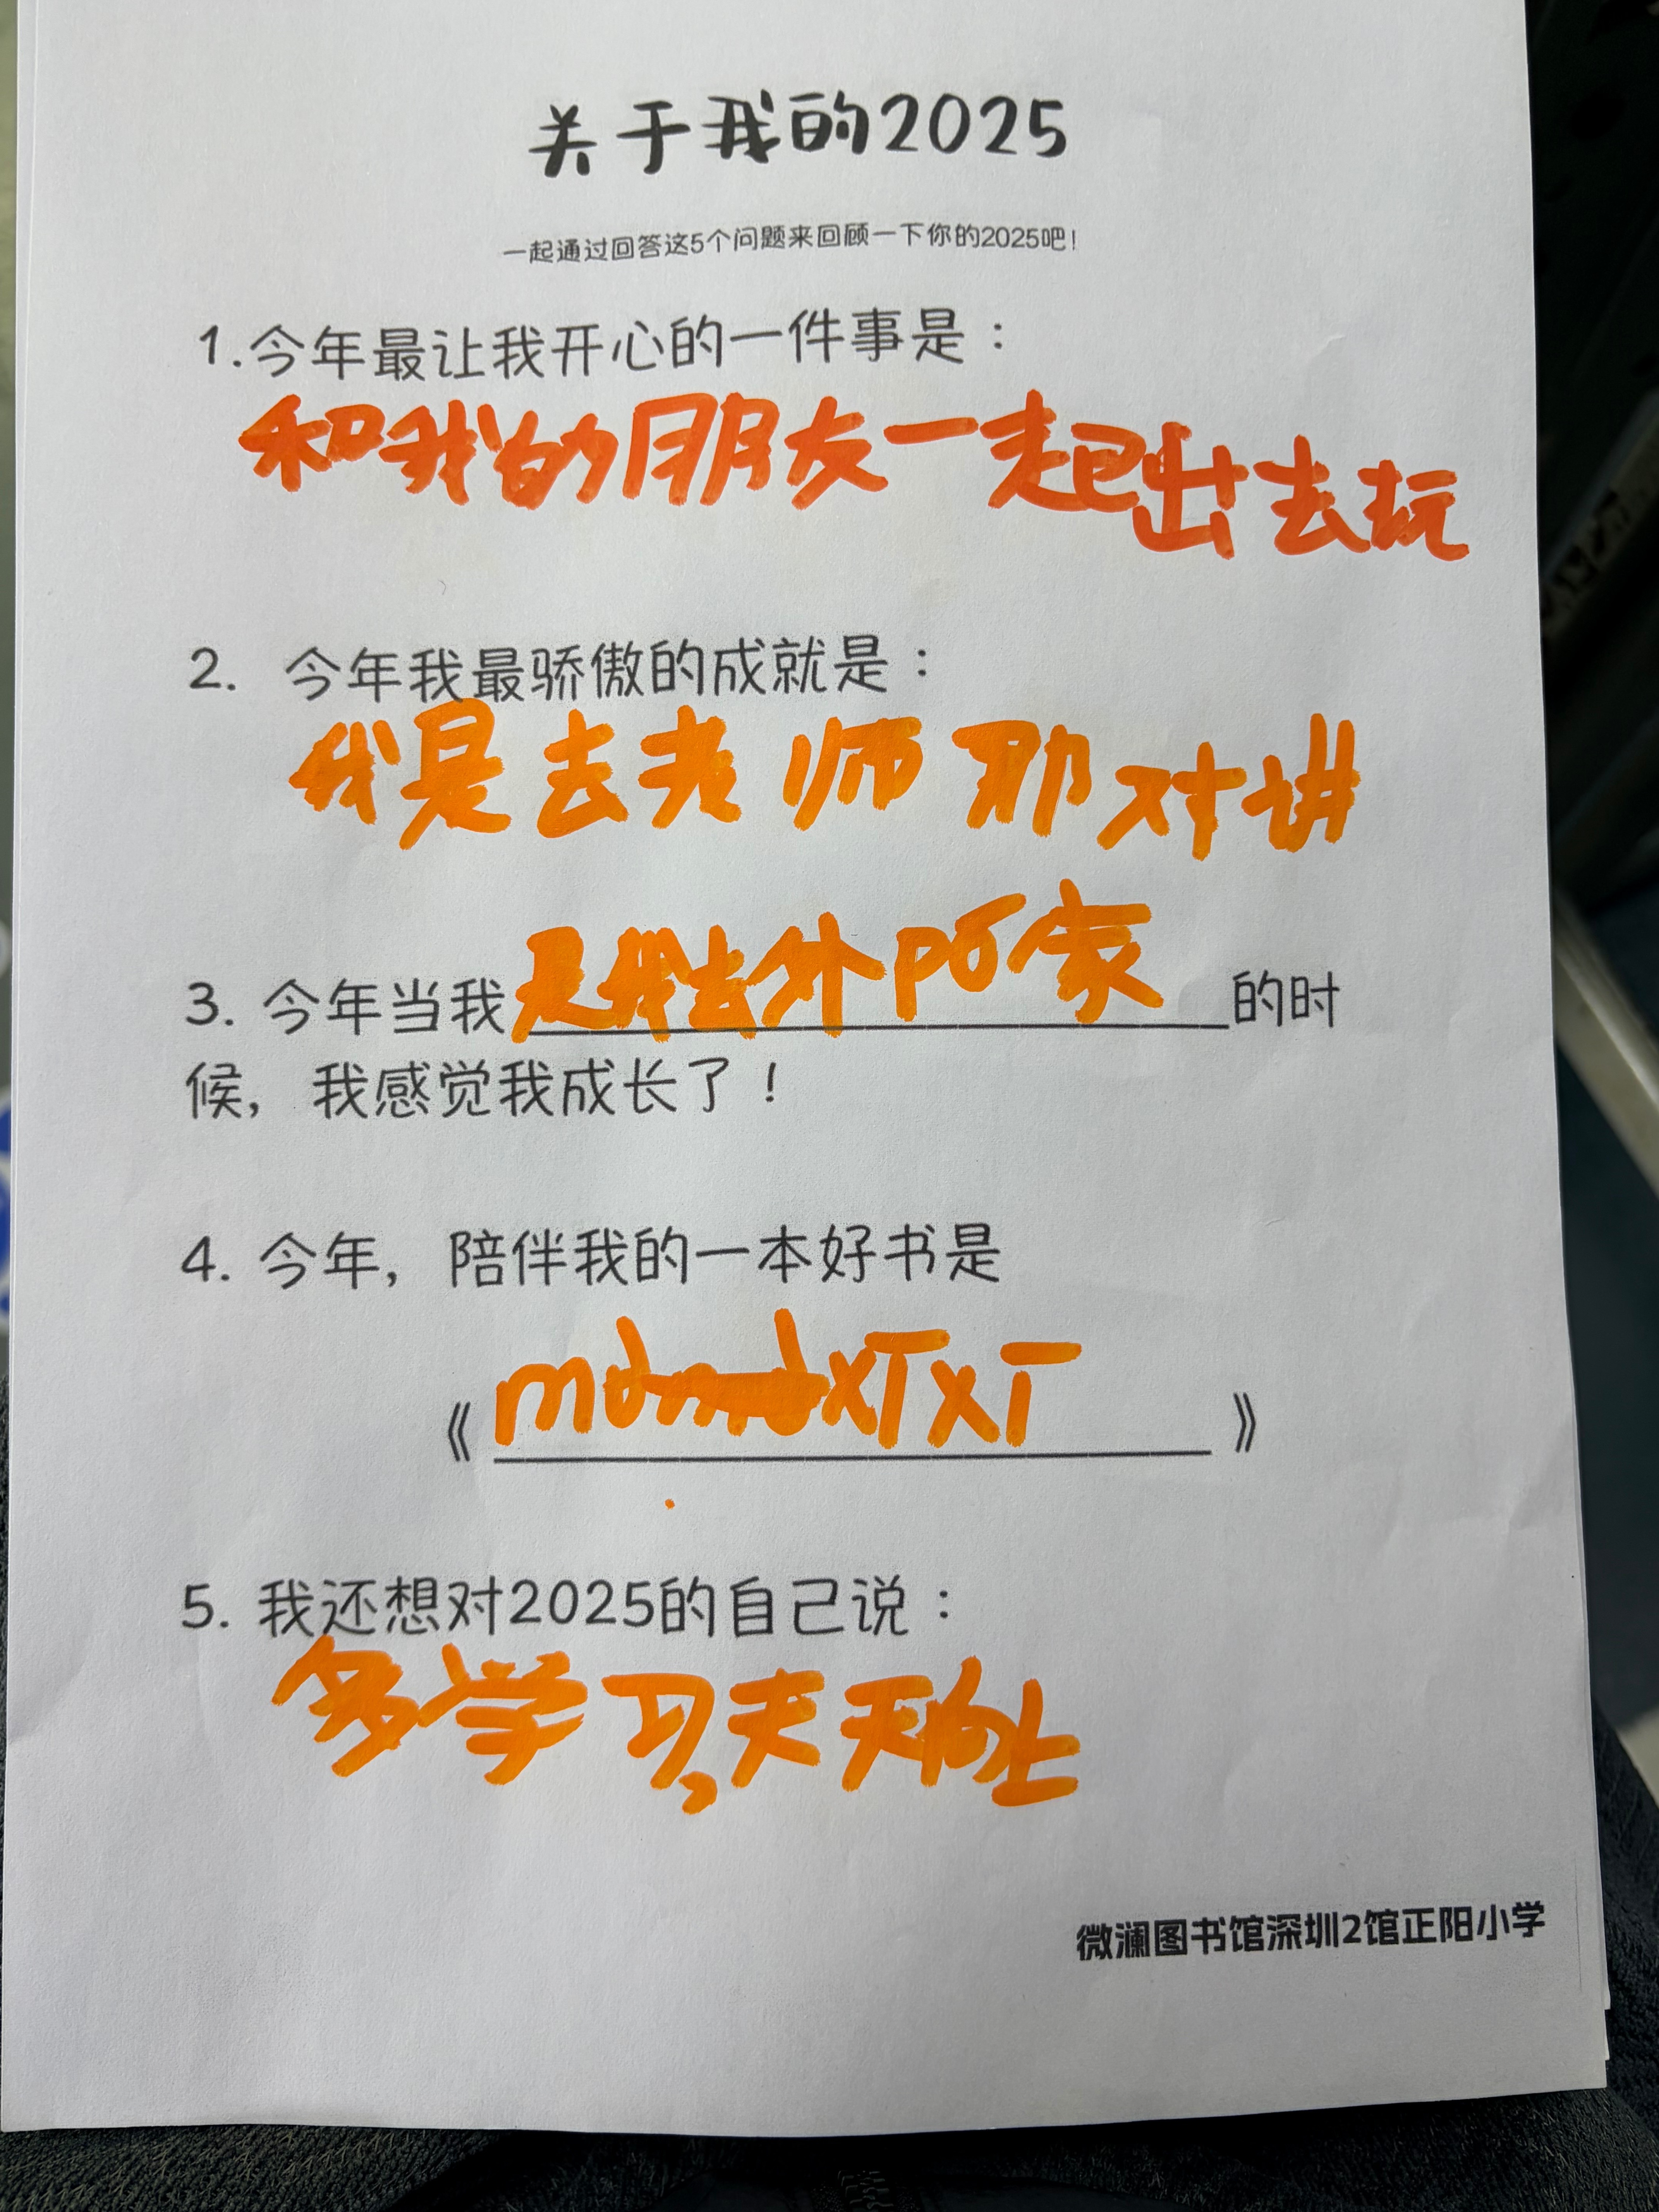 关于我的2025
一起通过回答这5个问题来回顾一下你的2025吧！
1.今年最让我开心的一件事是：
和我的朋友一起出去玩
2. 今年我最骄傲的成就是：
我是去老师那对讲
是我去外po家
3. 今年当我的时
候，我感觉我成长了！
4. 今年，陪伴我的一本好书是
《xTxT》
5. 我还想对2025的自己说：
多学习，天天向上
微澜图书馆深圳2馆正阳小学